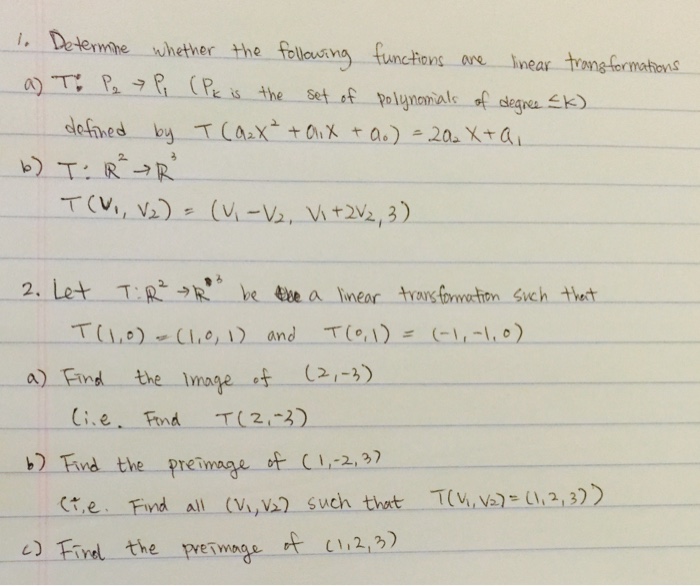 1. Determine whether the following functions are linear transformations
a) T: P₂ → P₁ (Pₖ is the set of polynomials of degree ≤k)
defined by T(a₂x² + a₁x + a₀) = 2a₂ x + a₁
b) T: R² → R³
T(V₁, V₂) = (V₁ - V₂, V₁ + 2V₂, 3)
2. Let T: R² → R³ be a linear transformation such that
T(1,0) = (1,0,1) and T(0,1) = (-1,-1,0)
a) Find the image of (2,-3)
(i.e. Find T(2,-3)
b) Find the preimage of (1,-2,3)
(i.e. Find all (V₁,V₂) such that T(V₁,V₂) = (1,2,3))
c) Find the preimage of (1,2,3)